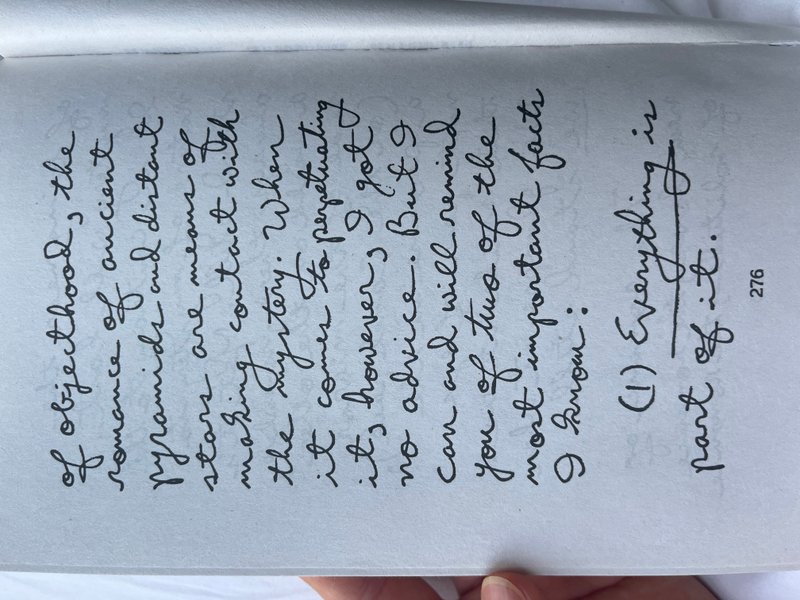 of objecthood, the
romance of ancient
pyramids and distant
stars are means of
making contact with
the mystery. When
it comes to perpetuating
it, however, I got
no advice. But I
can and will remind
you of two of the
most important facts
I know:
(1) Everything is
part of it.
276